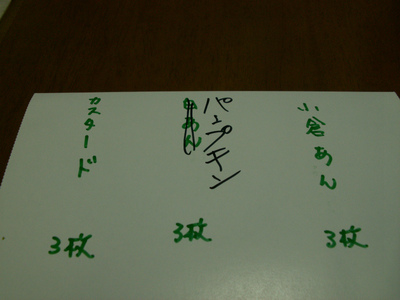 小倉あん
3枚
パンプキン
3枚
カスタード
3枚